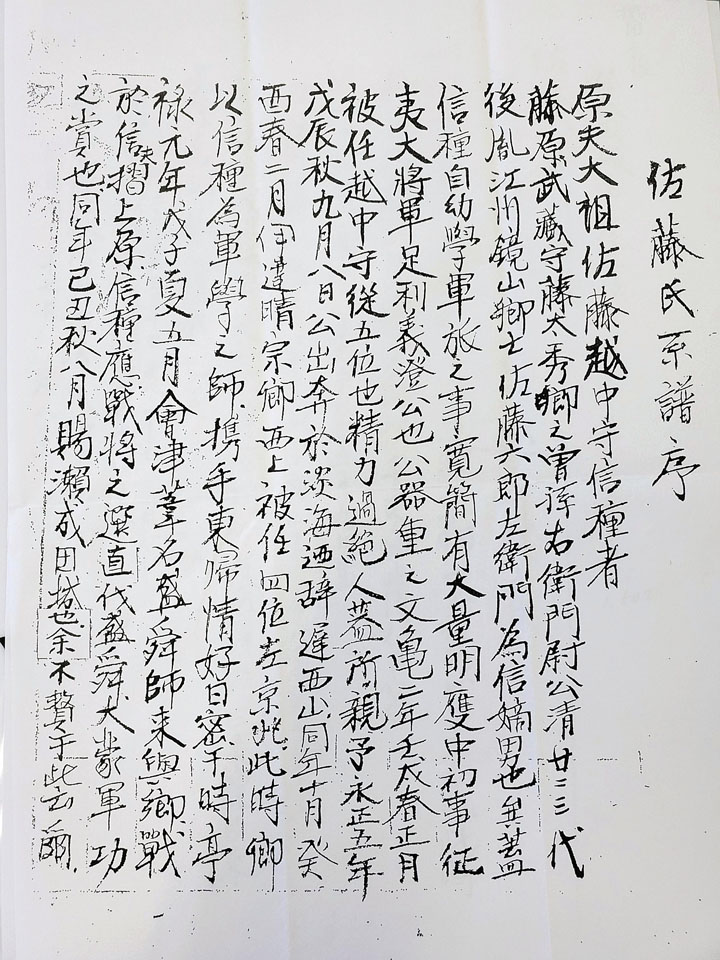 佐藤氏系譜序
原夫大祖佐藤越中守信種者
藤原武藏守藤太秀郷之曽孫右衛門尉公清廿三三代
後胤江州鏡山郷士佐藤六郎左衛門為信嫡男也蓋
信種自幼學軍旅之事寛簡有大量明應中初事征
夷大將軍足利義澄公也公器重之文亀二年壬戌春正月
被任越中守從五位也精力過絶人蓋所親予永正五年
戊辰秋九月八日公出奔於淡海迺辞遅西山同年十月癸
酉春二月伊達晴宗郷西上被任四位左京兆此時郷
以信種為軍學之師携手東帰情好日密于時亭
禄元年戊子夏五月會津葦名盛舜師来與郷戰
於信夫摺上原信種應戰將之選直代盛舜大蒙軍功
之賞也同年己丑秋八月賜瀬成田塔也余不贅于此云爾